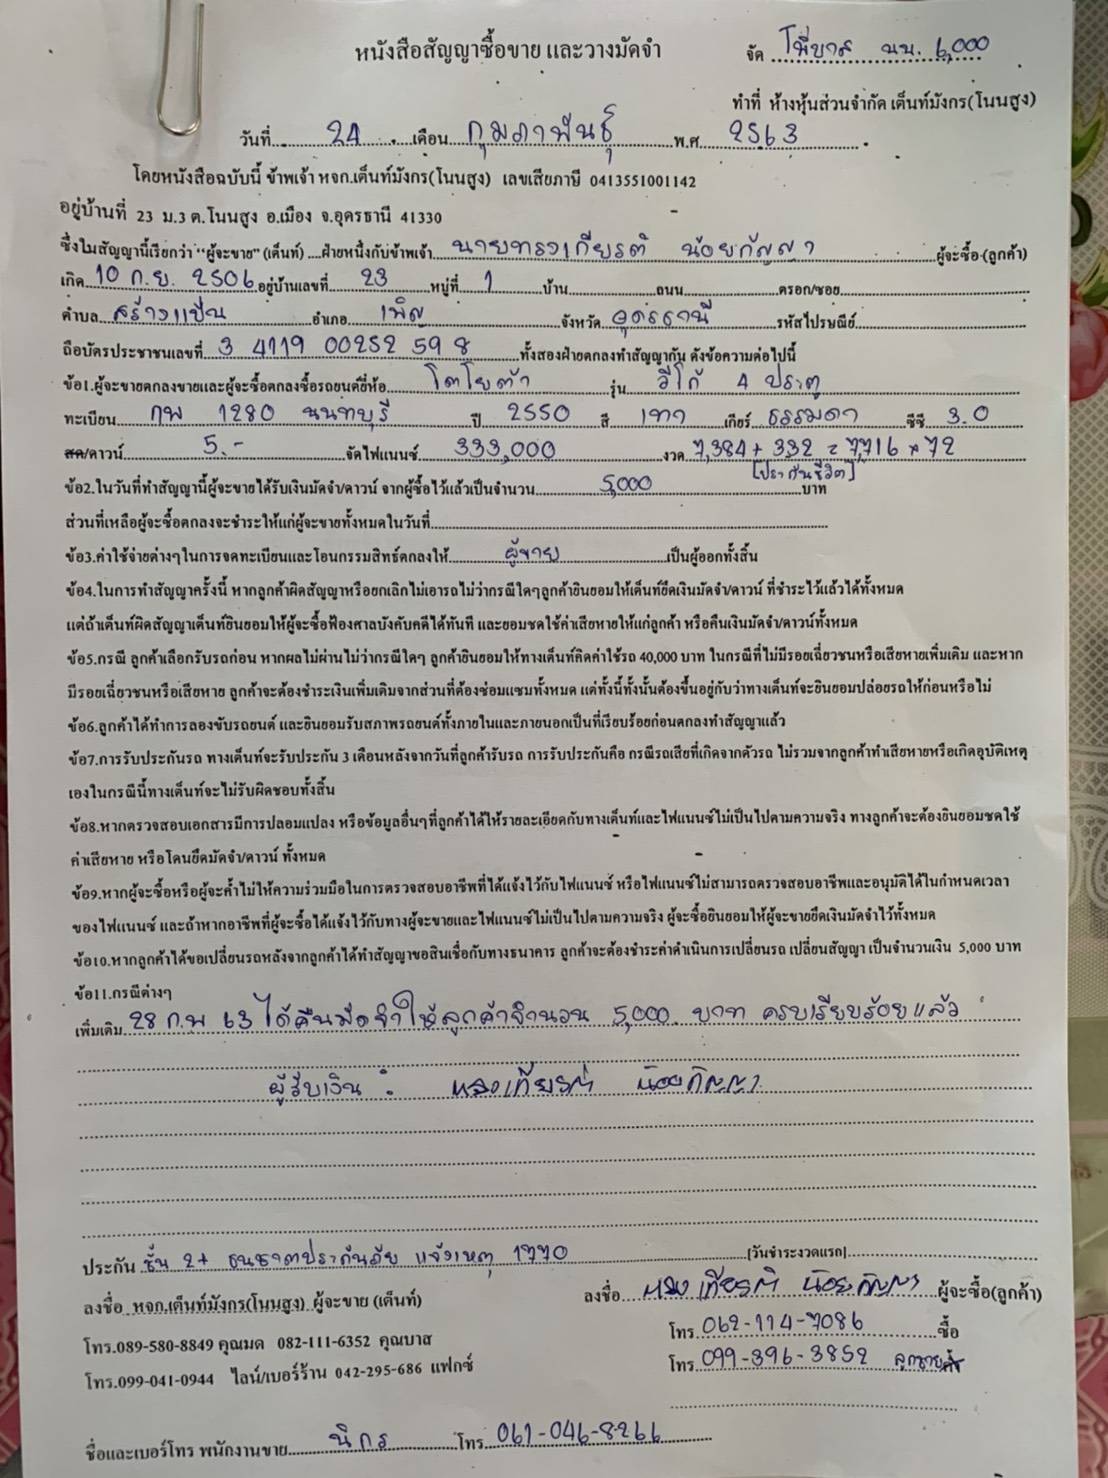 หนังสือสัญญาซื้อขาย และวางมัดจำ
จัด นน. 6,000
ทำที่ ห้างหุ้นส่วนจำกัด เต็นท์มังกร(โนนสูง)
วันที่ 24 เดือน กุมภาพันธุ์ พ.ศ 2563
โดยหนังสือฉบับนี้ ข้าพเจ้า หจก.เต็นท์มังกร(โนนสูง) เลขเสียภาษี 0413551001142
อยู่บ้านที่ 23 ม.3 ต.โนนสูง อ.เมือง จ.อุดรธานี 41330
ซึ่งในสัญญานี้เรียกว่า "ผู้จะขาย" (เต็นท์) ....ฝ่ายหนึ่งกับข้าพเจ้า นายทรงเกียรติ น้อยกัญญา ผู้จะซื้อ (ลูกค้า)
เกิด 10 ก.ย. 2506 อยู่บ้านเลขที่ 23 หมู่ที่ 1 บ้าน ถนน ตรอก/ซอย
ตำบล สร้างแป้น อำเภอ เพ็ญ จังหวัด อุดรธานี รหัสไปรษณีย์
ถือบัตรประชาชนเลขที่ 3 4119 00252 59 8 ทั้งสองฝ่ายตกลงทำสัญญากัน ดังข้อความต่อไปนี้
ข้อ1.ผู้จะขายตกลงขายและผู้จะซื้อตกลงซื้อรถยนต์ยี่ห้อ โตโยต้า รุ่น วีโก้ 4 ประตู
ทะเบียน กพ 1280 นนทบุรี ปี 2550 สี เทา เกียร์ ธรรมดา ซีซี 3.0
สด/ดาวน์ 5.- จัดไฟแนนซ์ 333,000 งวด 7,384 + 332 = 7,716 × 72
[ประกันชีวิต]
ข้อ2.ในวันที่ทำสัญญานี้ผู้จะขายได้รับเงินมัดจำ/ดาวน์ จากผู้ซื้อไว้แล้วเป็นจำนวน 5,000 บาท
ส่วนที่เหลือผู้จะซื้อตกลงจะชำระให้แก่ผู้จะขายทั้งหมดในวันที่
ข้อ3.ค่าใช้จ่ายต่างๆในการจดทะเบียนและโอนกรรมสิทธ์ตกลงให้ ผู้ขาย เป็นผู้ออกทั้งสิ้น
ข้อ4.ในการทำสัญญาครั้งนี้ หากลูกค้าผิดสัญญาหรือยกเลิกไม่เอารถไม่ว่ากรณีใดๆลูกค้ายินยอมให้เต็นท์ยึดเงินมัดจำ/ดาวน์ ที่ชำระไว้แล้วได้ทั้งหมด
แต่ถ้าเต็นท์ผิดสัญญาเต็นท์ยินยอมให้ผู้จะซื้อฟ้องศาลบังคับคดีได้ทันที และยอมชดใช้ค่าเสียหายให้แก่ลูกค้า หรือคืนเงินมัดจำ/ดาวน์ทั้งหมด
ข้อ5.กรณี ลูกค้าเลือกรับรถก่อน หากผลไม่ผ่านไม่ว่ากรณีใดๆ ลูกค้ายินยอมให้ทางเต็นท์คิดค่าใช้รถ 40,000 บาท ในกรณีที่ไม่มีรอยเฉี่ยวชนหรือเสียหายเพิ่มเติม และหาก
มีรอยเฉี่ยวชนหรือเสียหาย ลูกค้าจะต้องชำระเงินเพิ่มเติมจากส่วนที่ต้องซ่อมแซมทั้งหมด แต่ทั้งนี้ทั้งนั้นต้องขึ้นอยู่กับว่าทางเต็นท์จะยินยอมปล่อยรถให้ก่อนหรือไม่
ข้อ6.ลูกค้าได้ทำการลองขับรถยนต์ และยินยอมรับสภาพรถยนต์ทั้งภายในและภายนอกเป็นที่เรียบร้อยก่อนตกลงทำสัญญาแล้ว
ข้อ7.การรับประกันรถ ทางเต็นท์จะรับประกัน 3 เดือนหลังจากวันที่ลูกค้ารับรถ การรับประกันคือ กรณีรถเสียที่เกิดจากตัวรถ ไม่รวมจากลูกค้าทำเสียหายหรือเกิดอุบัติเหตุ
เองในกรณีนี้ทางเต็นท์จะไม่รับผิดชอบทั้งสิ้น
ข้อ8.หากตรวจสอบเอกสารมีการปลอมแปลง หรือข้อมูลอื่นๆที่ลูกค้าได้ให้รายละเอียดกับทางเต็นท์และไฟแนนซ์ไม่เป็นไปตามความจริง ทางลูกค้าจะต้องยินยอมชดใช้
ค่าเสียหาย หรือโดนยึดมัดจำ/ดาวน์ ทั้งหมด
ข้อ9.หากผู้จะซื้อหรือผู้จะค้ำไม่ให้ความร่วมมือในการตรวจสอบอาชีพที่ได้แจ้งไว้กับไฟแนนซ์ หรือไฟแนนซ์ไม่สามารถตรวจสอบอาชีพและอนุมัติได้ในกำหนดเวลา
ของไฟแนนซ์ และถ้าหากอาชีพที่ผู้จะซื้อได้แจ้งไว้กับทางผู้จะขายและไฟแนนซ์ไม่เป็นไปตามความจริง ผู้จะซื้อยินยอมให้ผู้จะขายยึดเงินมัดจำไว้ทั้งหมด
ข้อ10.หากลูกค้าได้ขอเปลี่ยนรถหลังจากลูกค้าได้ทำสัญญาขอสินเชื่อกับทางธนาคาร ลูกค้าจะต้องชำระค่าดำเนินการเปลี่ยนรถ เปลี่ยนสัญญา เป็นจำนวนเงิน 5,000 บาท
ข้อ11.กรณีต่างๆ
เพิ่มเติม 28 ก.พ 63 ได้คืนมัดจำให้ลูกค้าจำนวน 5,000 บาท ครบเรียบร้อยแล้ว
ผู้รับเงิน : ทรงเกียรติ น้อยกัญญา
ประกัน ชั้น 2+ ธนชาตประกันภัย แจ้งเหตุ 1770 [วันชำระงวดแรก]
ลงชื่อ หจก.เต็นท์มังกร(โนนสูง) ผู้จะขาย (เต็นท์)
ลงชื่อ ทรงเกียรติ น้อยกัญญา ผู้จะซื้อ(ลูกค้า)
โทร.089-580-8849 คุณมด 082-111-6352 คุณบาส
โทร. 062-114-7086 ซื้อ
โทร.099-041-0944 ไลน์/เบอร์ร้าน 042-295-686 แฟกซ์
โทร. 099-396-3852 ลูกชาย
ชื่อและเบอร์โทร พนักงานขาย นิกร โทร 061-046-8266